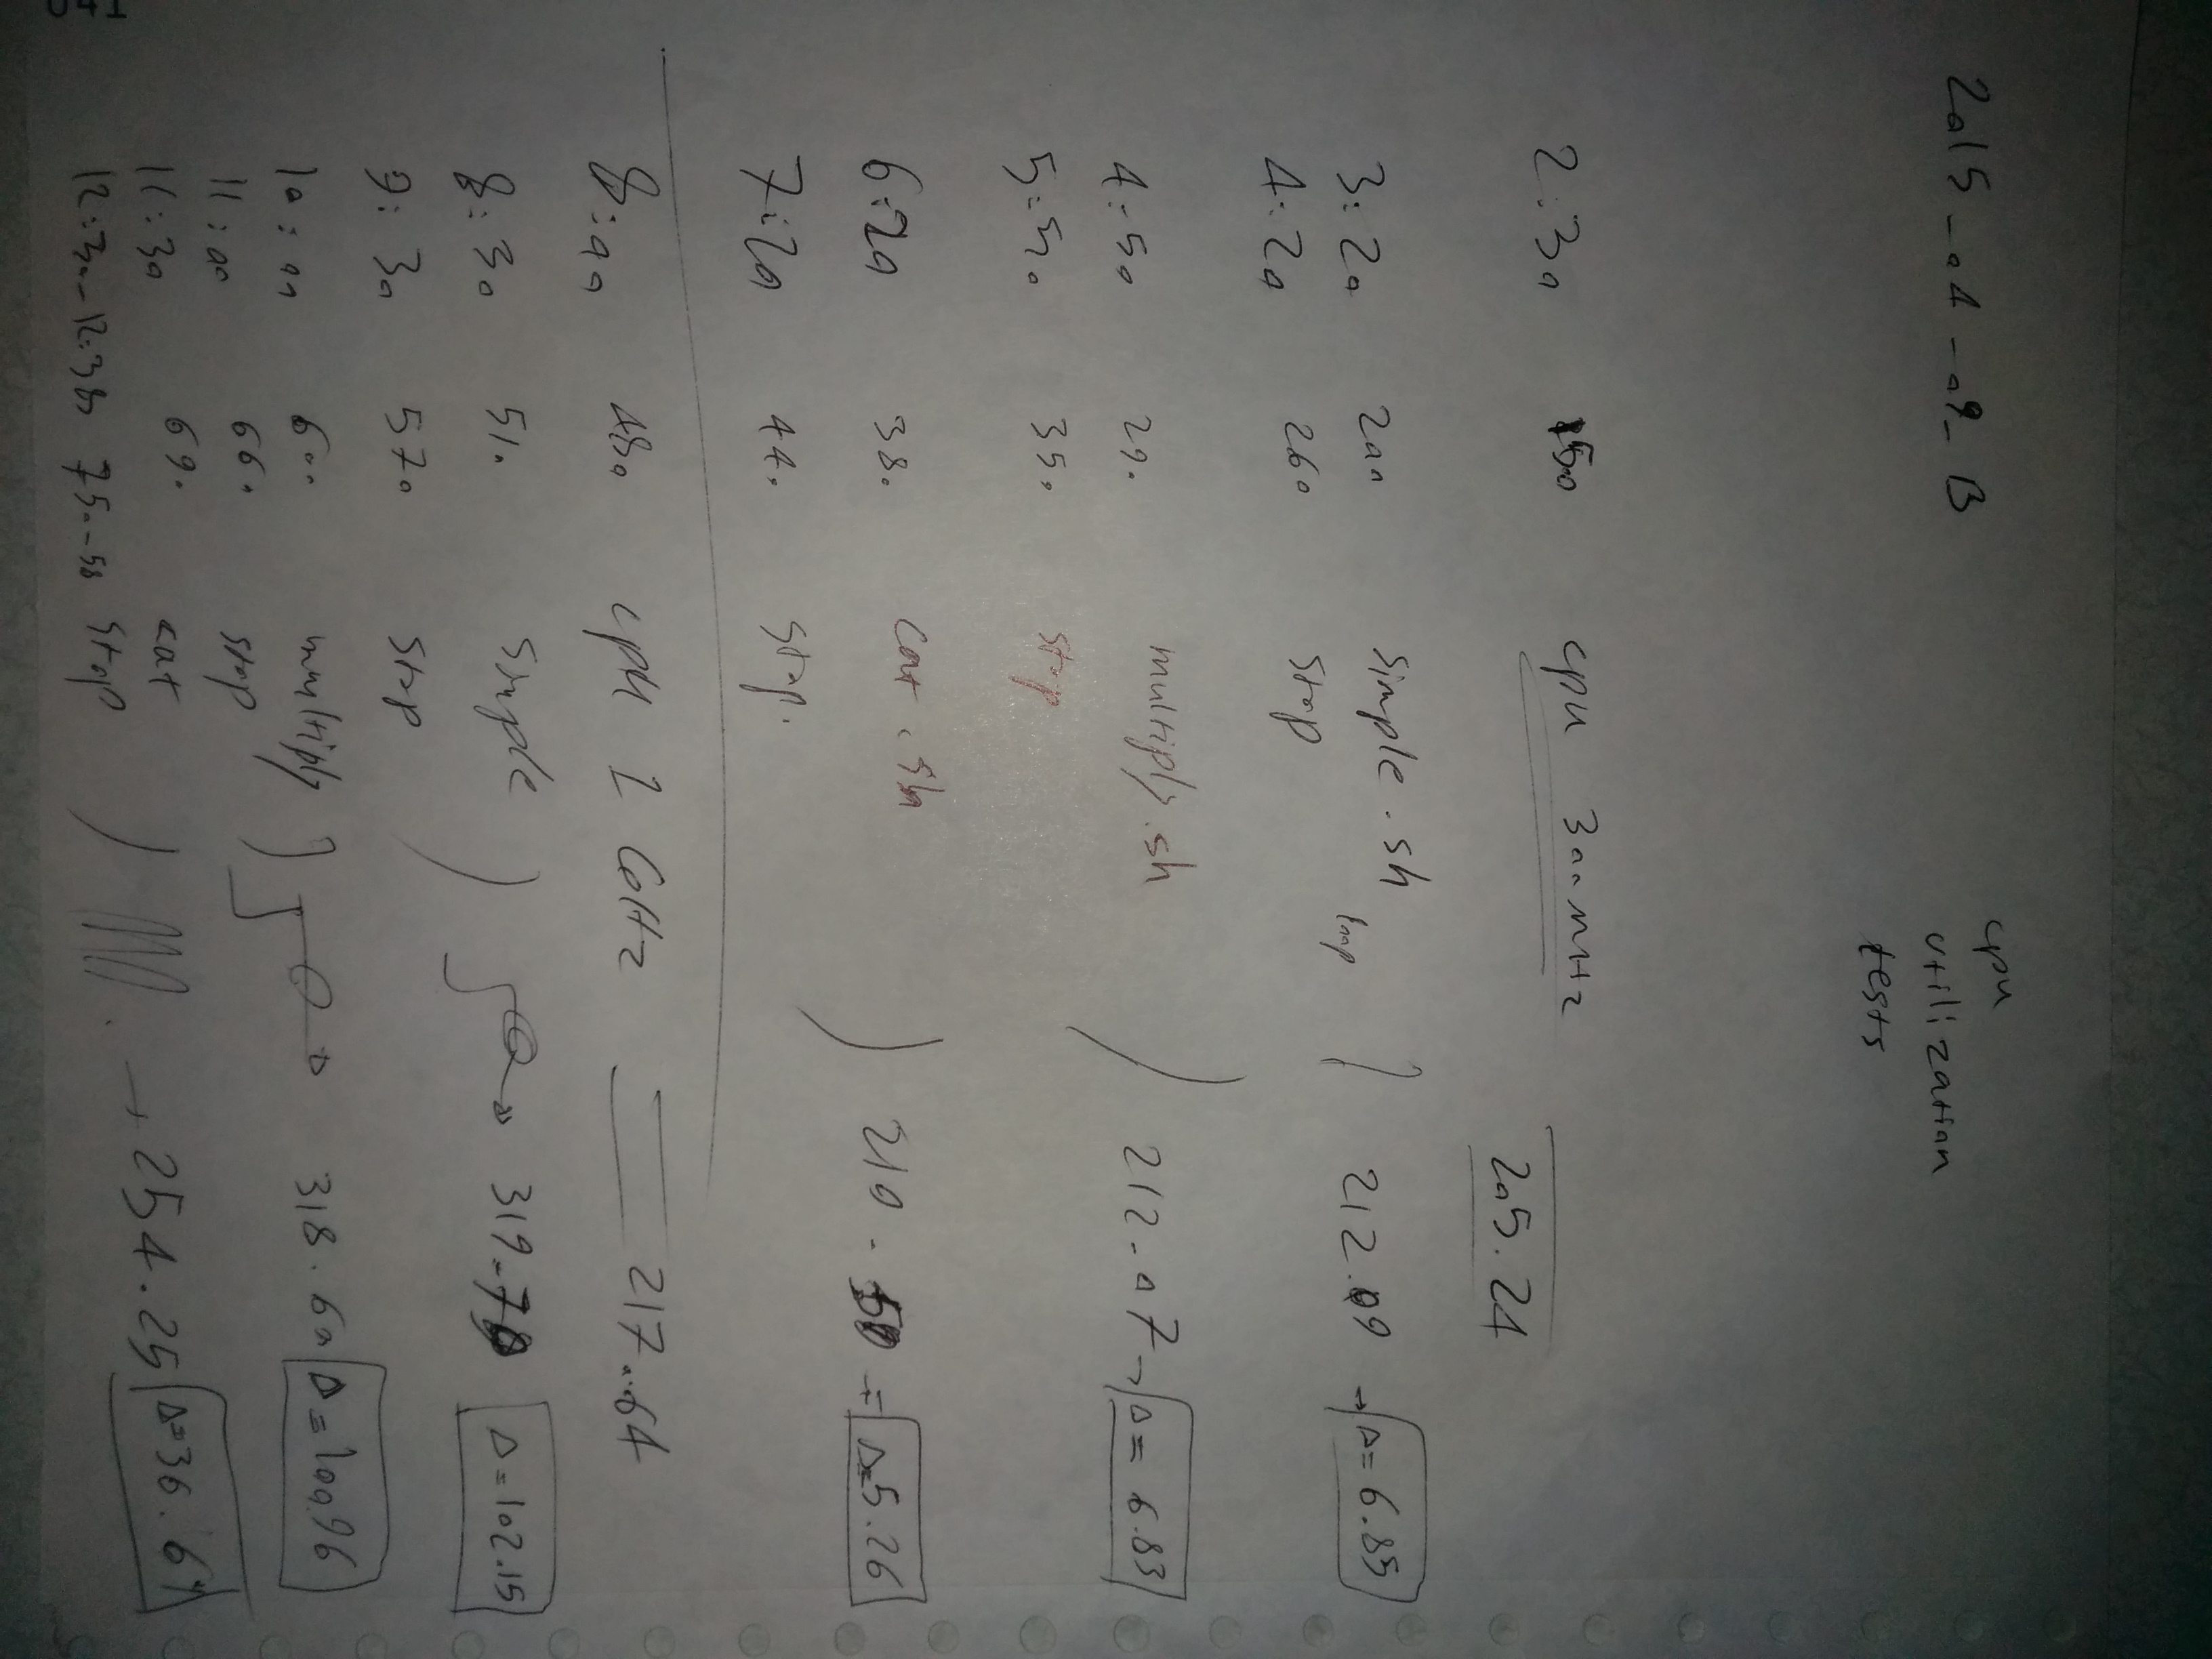 2015-04-09-B
cpu
utilization
tests
2:30 150 cpu 300 MHz 205.24
3:20 200 simple.sh loop 212.09 → Δ= 6.85
4:20 260 stop
4:50 290 multiply.sh 212.07 → Δ= 6.83
5:50 350 stop
6:20 380 cat.sh 210.50 = Δ=5.26
7:20 440 stop.
8:00 480 cpu 1 GHz 217.64
8:30 510 simple → 319.78 Δ=102.15
9:30 570 stop
10:00 600 multiply → 318.60 Δ=100.96
11:00 660 stop
11:30 690 cat → 254.25 Δ=36.61
12:30-12:38 750-58 stop